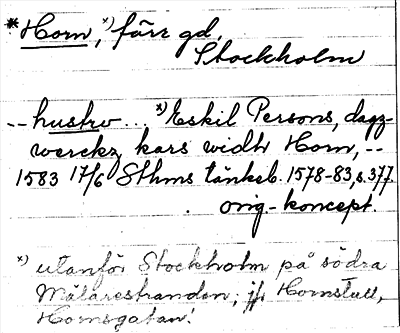 * Horn, *) förr gd.
Stockholm
-- hustrv ... *) Eskil Persons, dagz-
werckz kars widh Horn, --
1583 17/6 Sthms tänkeb. 1578-83, s. 377.
orig.-koncept.
*) utanför Stockholm på södra
Mälarestranden; jfr Hornstull,
Hornsgatan!